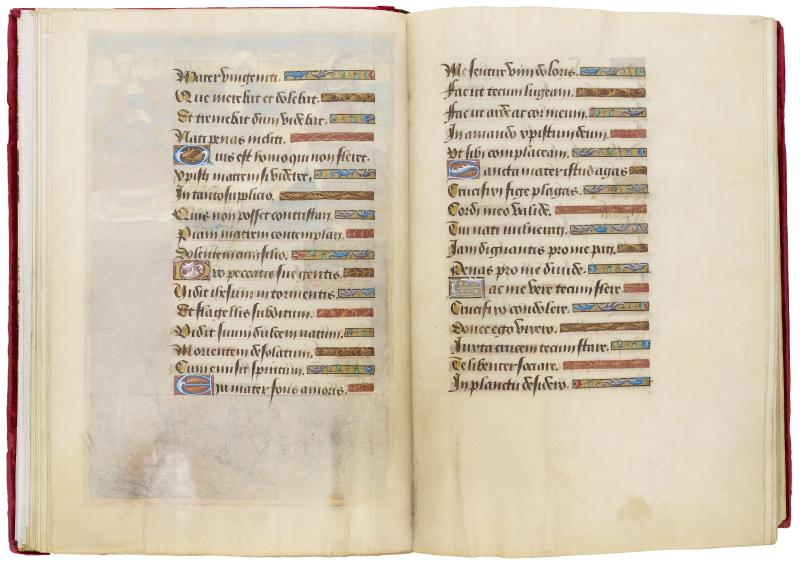 Mater unigeniti.
Que merebat et dolebat.
Et tremebat dum videbat.
Nati penas incliti.
Quis est homo qui non fleret.
Xpisti matrem si videret.
In tanto supplicio.
Quis non posset contristari.
Piam matrem contemplari.
Dolentem cum filio.
Pro peccatis sue gentis.
Vidit ihesum in tormentis.
Et flagellis subditum.
Vidit suum dulcem natum.
Morientem desolatum.
Cum emisit spiritum.
Eya mater fons amoris.
Me sentire vim doloris.
Fac ut tecum lugeam.
Fac ut ardeat cor meum.
In amando xpistum deum.
Ut sibi complaceam.
Sancta mater istud agas
Crucifixi fige plagas.
Cordi meo valide.
Tui nati vulnerati.
Jam dignantis pro me pati.
Penas pro me divide.
Fac me vere tecum flere.
Crucifixo condolere.
Donec ego vixero.
Juxta crucem tecum stare.
Te libenter sociare.
In planctu desidero.